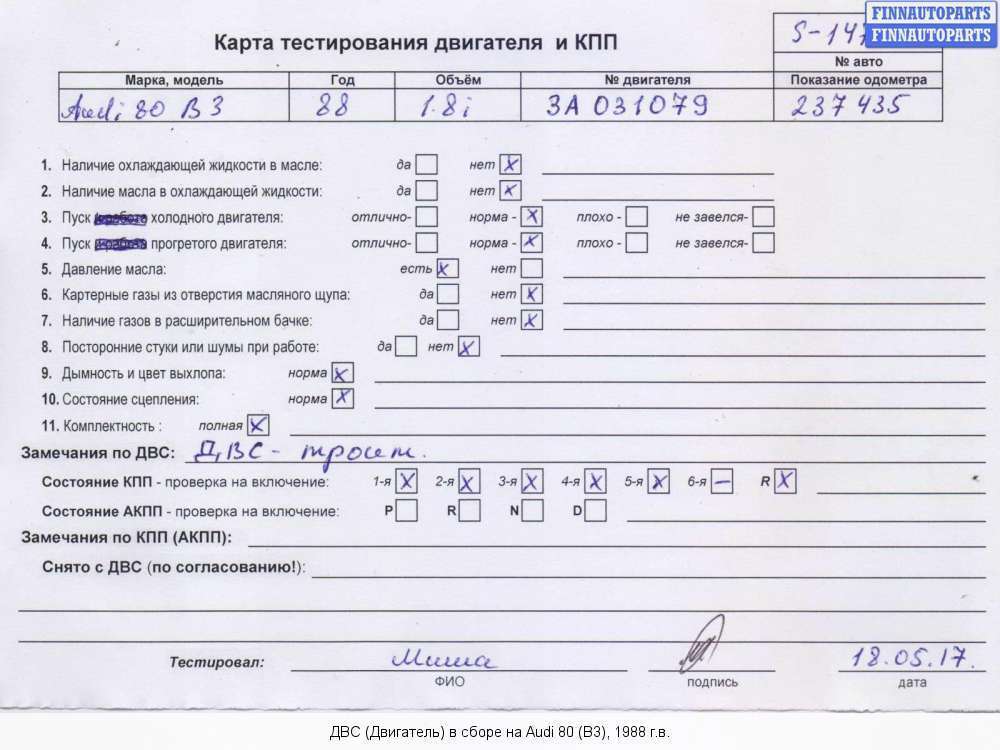 FINNAUTOPARTS
FINNAUTOPARTS
S-147
Карта тестирования двигателя и КПП
№ авто
Марка, модель Год Объём № двигателя Показание одометра
Audi 80 B3 88 1.8i 3A 031079 237435
1. Наличие охлаждающей жидкости в масле: да нет X
2. Наличие масла в охлаждающей жидкости: да нет X
3. Пуск холодного двигателя: отлично- норма - X плохо - не завелся-
4. Пуск прогретого двигателя: отлично- норма - X плохо - не завелся-
5. Давление масла: есть X нет
6. Картерные газы из отверстия масляного щупа: да нет X
7. Наличие газов в расширительном бачке: да нет X
8. Посторонние стуки или шумы при работе: да нет X
9. Дымность и цвет выхлопа: норма X
10. Состояние сцепления: норма X
11. Комплектность : полная X
Замечания по ДВС: ДВС - троит.
Состояние КПП - проверка на включение: 1-я X 2-я X 3-я X 4-я X 5-я X 6-я – R X
Состояние АКПП - проверка на включение: P R N D
Замечания по КПП (АКПП):
Снято с ДВС (по согласованию!):
Тестировал: Миша 18.05.17.
ФИО подпись дата
ДВС (Двигатель) в сборе на Audi 80 (B3), 1988 г.в.